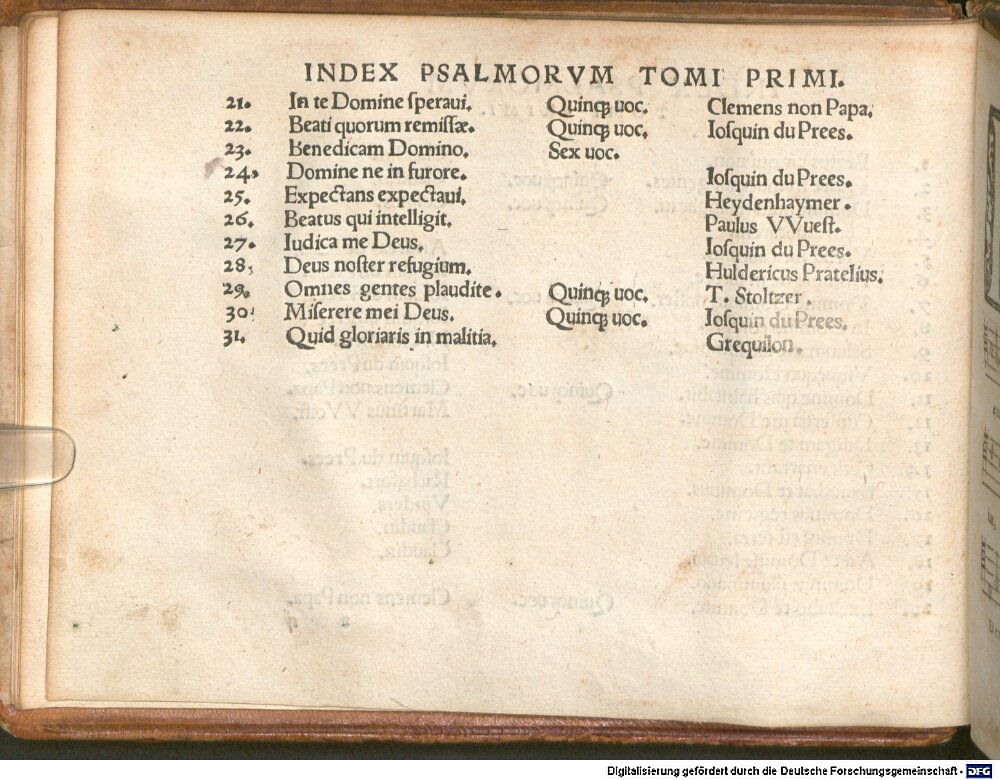 INDEX PSALMORVM TOMI PRIMI.
21. In te Domine ſperaui. Quinqꝫ uoc. Clemens non Papa.
22. Beati quorum remiſſæ. Quinqꝫ uoc. Ioſquin du Prees.
23. Benedicam Domino. Sex uoc.
24. Domine ne in furore. Ioſquin du Prees.
25. Expectans expectaui. Heydenhaymer.
26. Beatus qui intelligit. Paulus VVueſt.
27. Iudica me Deus. Ioſquin du Prees.
28. Deus noſter refugium. Huldericus Pratelius.
29. Omnes gentes plaudite. Quinqꝫ uoc. T. Stoltzer.
30. Miſerere mei Deus. Quinqꝫ uoc. Ioſquin du Prees.
31. Quid gloriaris in malitia. Grequilon.
Digitalisierung gefördert durch die Deutsche Forschungsgemeinschaft - DFG